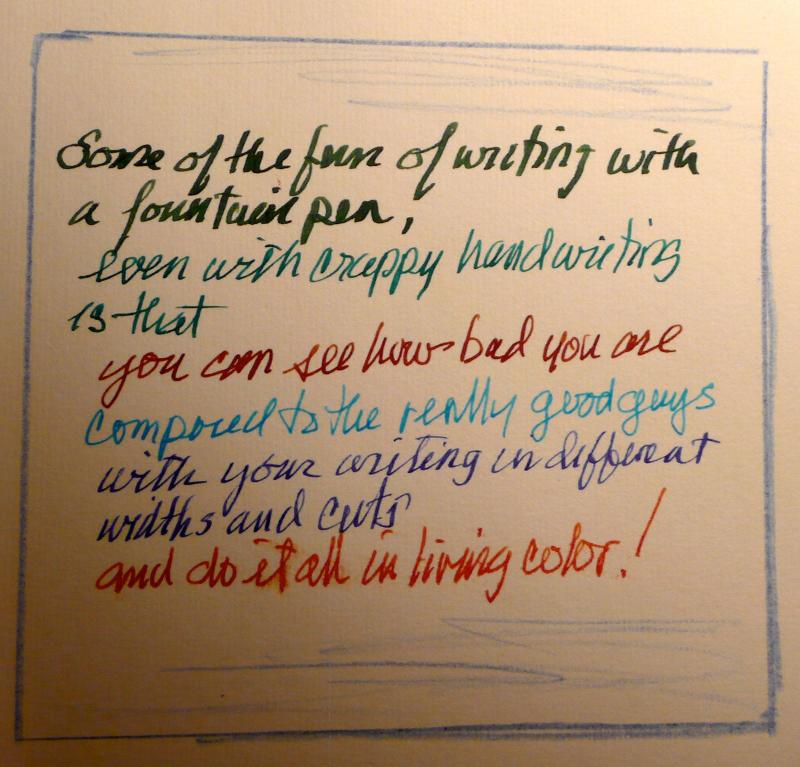 Some of the fun of writing with
a fountain pen,
even with crappy handwriting
is that
you can see how bad you are
compared to the really good guys
with your writing in different
widths and cuts
and do it all in living color!